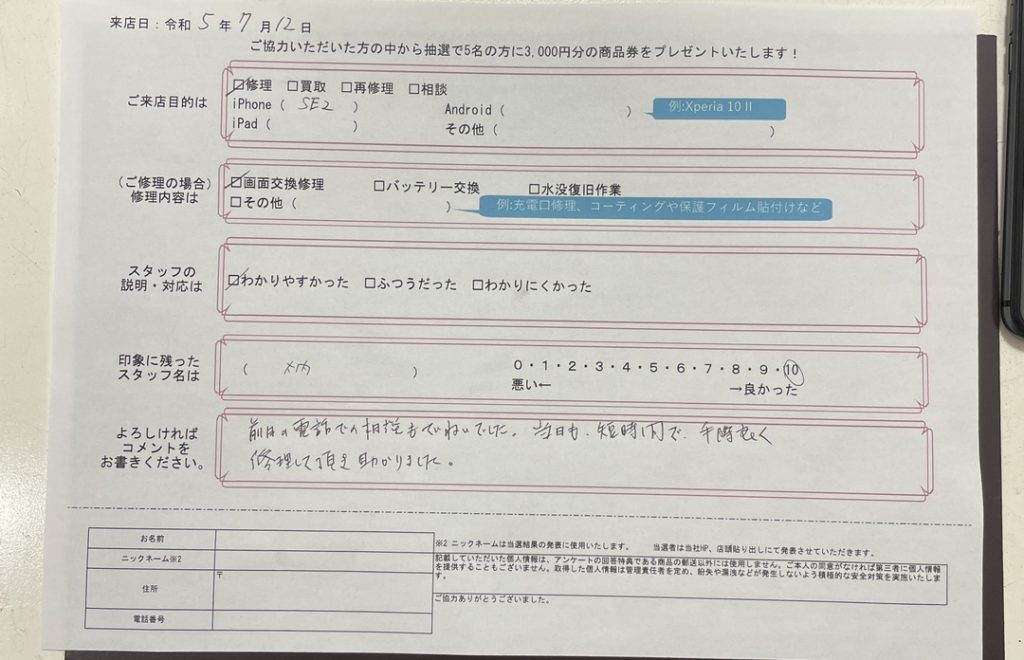 来店日：令和 5 年 7 月 12 日
ご協力いただいた方の中から抽選で5名の方に3,000円分の商品券をプレゼントいたします！
ご来店目的は
☑修理 □買取 □再修理 □相談
iPhone（ SE2 ） Android（ ） 例:Xperia 10 II
iPad（ ） その他（ ）
（ご修理の場合）
修理内容は
☑画面交換修理 □バッテリー交換 □水没復旧作業
□その他（ ） 例:充電口修理、コーティングや保護フィルム貼付けなど
スタッフの
説明・対応は
☑わかりやすかった □ふつうだった □わかりにくかった
印象に残った
スタッフ名は
（ ）
0・1・2・3・4・5・6・7・8・9・10
悪い← →良かった
よろしければ
コメントを
お書きください。
前日の電話での相談もていねいでした。当日も、短時間で、手際よく
修理して頂き助かりました。
お名前
ニックネーム※2
住所 〒
電話番号
※2 ニックネームは当選結果の発表に使用いたします。 当選者は当社HP、店頭貼り出しにて発表させていただきます。
記載していただいた個人情報は、アンケートの回答特典である商品の郵送以外には使用しません。ご本人の同意がなければ第三者に個人情報
を提供することもございません。取得した個人情報は管理責任者を定め、紛失や漏洩などが発生しないよう積極的な安全対策を実施いたしま
す。
ご協力ありがとうございました。